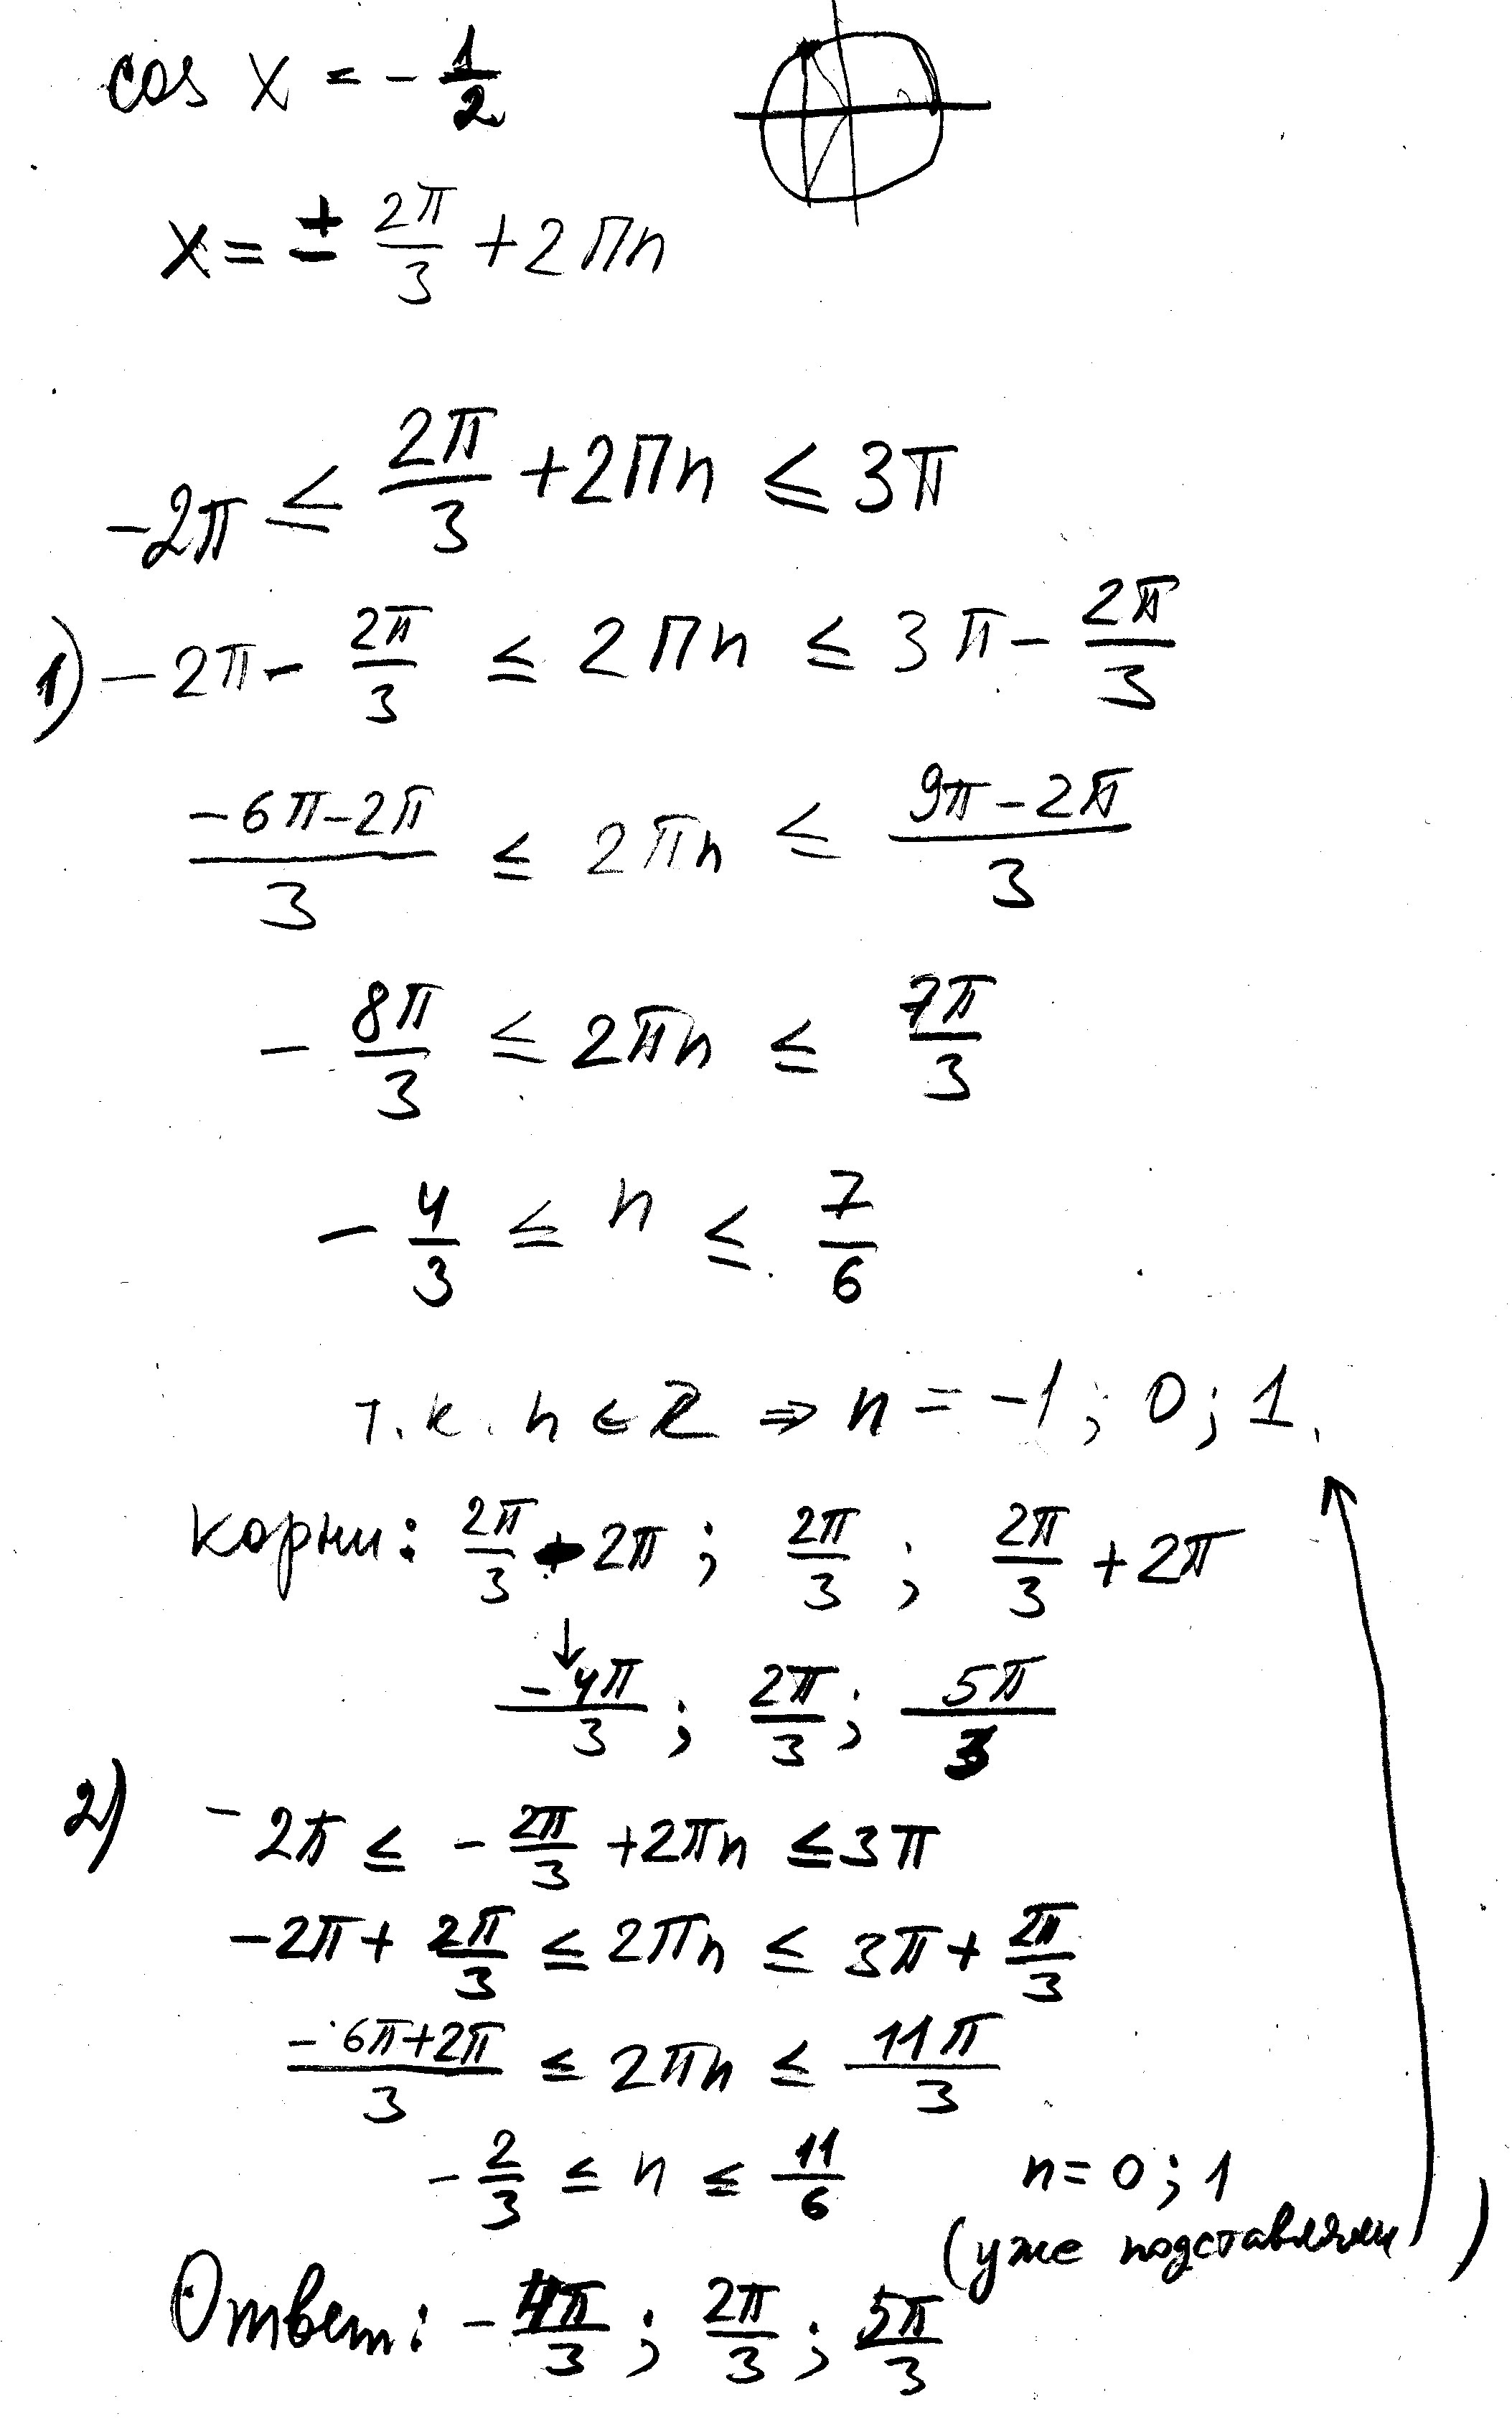 cos x = -1/2
x = ± 2π/3 + 2πn
-2π ≤ 2π/3 + 2πn ≤ 3π
1) -2π - 2π/3 ≤ 2πn ≤ 3π - 2π/3
(-6π-2π)/3 ≤ 2πn ≤ (9π-2π)/3
-8π/3 ≤ 2πn ≤ 7π/3
-4/3 ≤ n ≤ 7/6
т.к. n ∈ Z ⇒ n = -1; 0; 1.
корни: 2π/3 - 2π; 2π/3; 2π/3 + 2π
↓
-4π/3; 2π/3; 5π/3
2) -2π ≤ -2π/3 + 2πn ≤ 3π
-2π + 2π/3 ≤ 2πn ≤ 3π + 2π/3
(-6π+2π)/3 ≤ 2πn ≤ 11π/3
-2/3 ≤ n ≤ 11/6 n = 0; 1
(уже подставляли)
Ответ: -4π/3; 2π/3; 5π/3